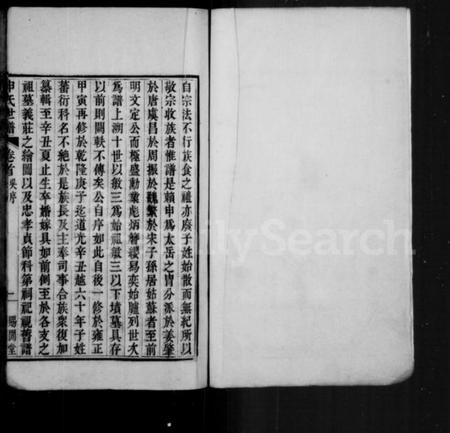 自宗法不行族食之禮亦廢子姓始散而無紀所以
敬宗收族者惟譜是賴申為太岳之冑分派於姜肇
於唐虞昌於周振於魏繁於宋子孫居始蘇者至前
明文定公而極盛勳業彪炳簪纓易奕始臚列世次
為譜上溯十世以敏三為始祖敏三以下墳墓具存
以前則闕軼不傳矣公自序如此自後一修於雍正
甲寅再修於乾隆庚子迄道光辛丑越六十年子姓
蕃衍科名不絕於是族長及主奉司事合族衆復加
纂輯至辛丑夏止生卒婚嫁具如前例至於各支之
祖墓義莊之繪圖以及忠孝貞節科第祠祀視舊譜
申氏世譜 卷首 序 一 賜閒堂
FamilySearch